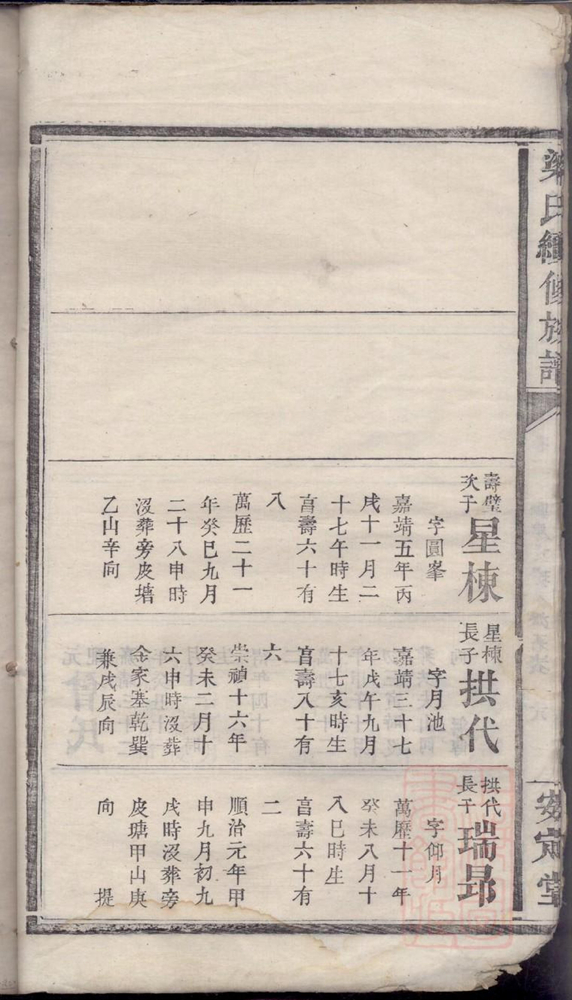 梁氏續修族譜
安定堂
壽璧
次子
星棟
字圓峯
嘉靖五年丙
戌十一月二
十七午時生
享壽六十有
八
萬歷二十一
年癸巳九月
二十八申時
沒葬旁皮塘
乙山辛向
星棟
長子
拱代
字月池
嘉靖三十七
年戊午九月
十七亥時生
享壽八十有
六
崇禎十六年
癸未二月十
六申時沒葬
金家塞乾巽
兼戌辰向
拱代
長子
瑞昂
字仰月
萬歷十一年
癸未八月十
八巳時生
享壽六十有
二
順治元年甲
申九月初九
戌時沒葬旁
皮塘甲山庚
向 提